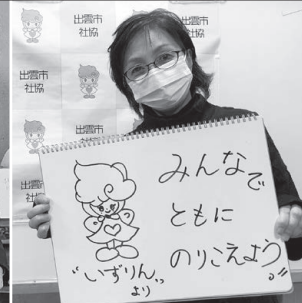 出雲市
社協
出雲市
社協
出雲市
社協
出雲市
社協
みんなで
ともに
のりこえよう!!
"いずりん"
より